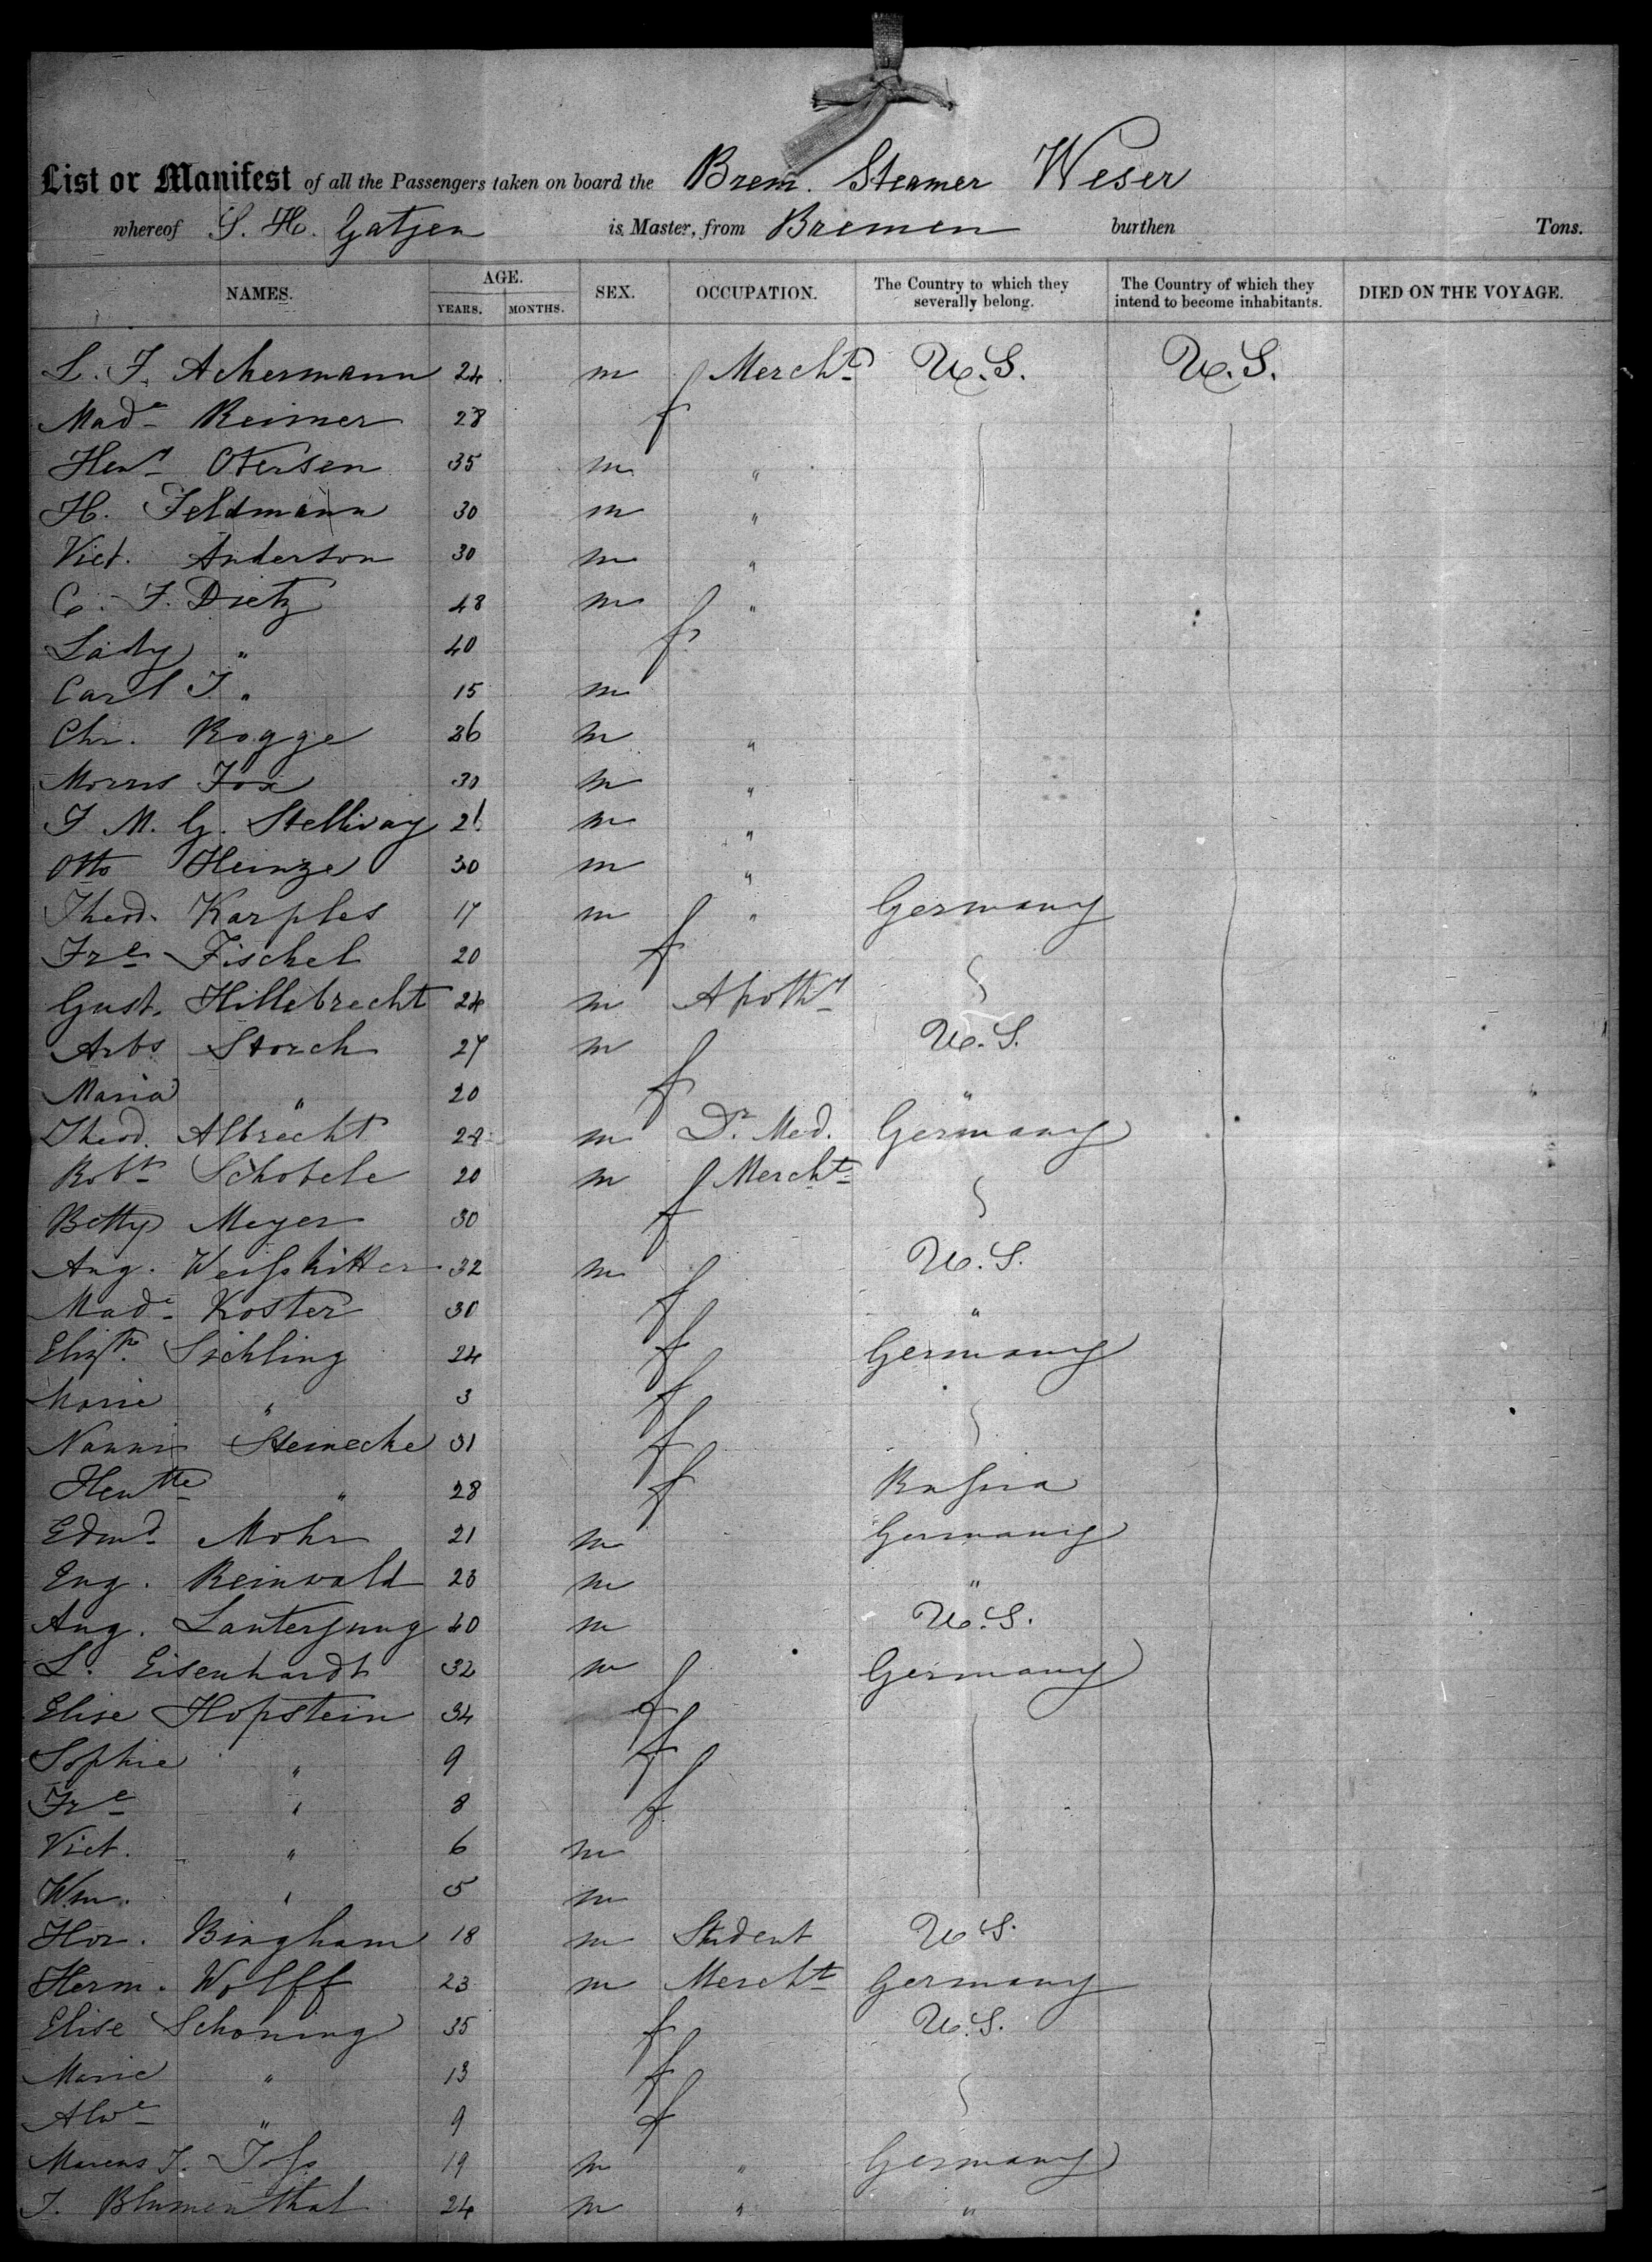 List or Manifest of all the Passengers taken on board the Brem. Steamer Weser
whereof G. H. Gatjen is Master, from Bremen burthen Tons.
NAMES. AGE. SEX. OCCUPATION. The Country to which they severally belong. The Country of which they intend to become inhabitants. DIED ON THE VOYAGE.
YEARS. MONTHS.
L. F. Ackermann 24 m Mercht U.S. U.S.
Made Reimer 28 f
Heny Otersen 35 m "
H. Feldmann 30 m "
Vict. Anderson 30 m "
C. F. Dietz 48 m "
Lady " 40 f
Carl F. " 15 m
Chr. Rogge 26 m "
Morris Fox 30 m "
F. M. G. Stellway 21 m "
Otto Heinze 30 m "
Theod. Karples 17 m " Germany
Fre Fischel 20 f
Gust. Hillebrecht 24 m Apothy
Arbs Storch 27 m U.S.
Maria " 20 f "
Theod. Albrecht 28 m Dr. Med. Germany
Robt Schobele 20 m Mercht
Betty Meyer 30 f
Aug. Weiſskitter 32 m U.S.
Made Koster 30 f "
Elizth. Sichling 24 f Germany
Marie " 3 f
Nanni Steinecke 31 f
Hentte " 28 f Ruſsia
Edmd Mohr 21 m Germany
Eug. Reinwald 23 m "
Aug. Lanterjung 40 m U.S.
L. Eisenhardt 32 m Germany
Elise Hopstein 34 f
Sophie " 9 f
Fre " 8 f
Vict. " 6 m
Wm. " 5 m
Hor. Bingham 18 m Student U.S.
Herm. Wolff 23 m Mercht Germany
Elise Schoning 35 f U.S.
Marie " 13 f
Alwe " 9 f
Marcus J. Joſs 19 m " Germany
J. Blumenthal 24 m " "